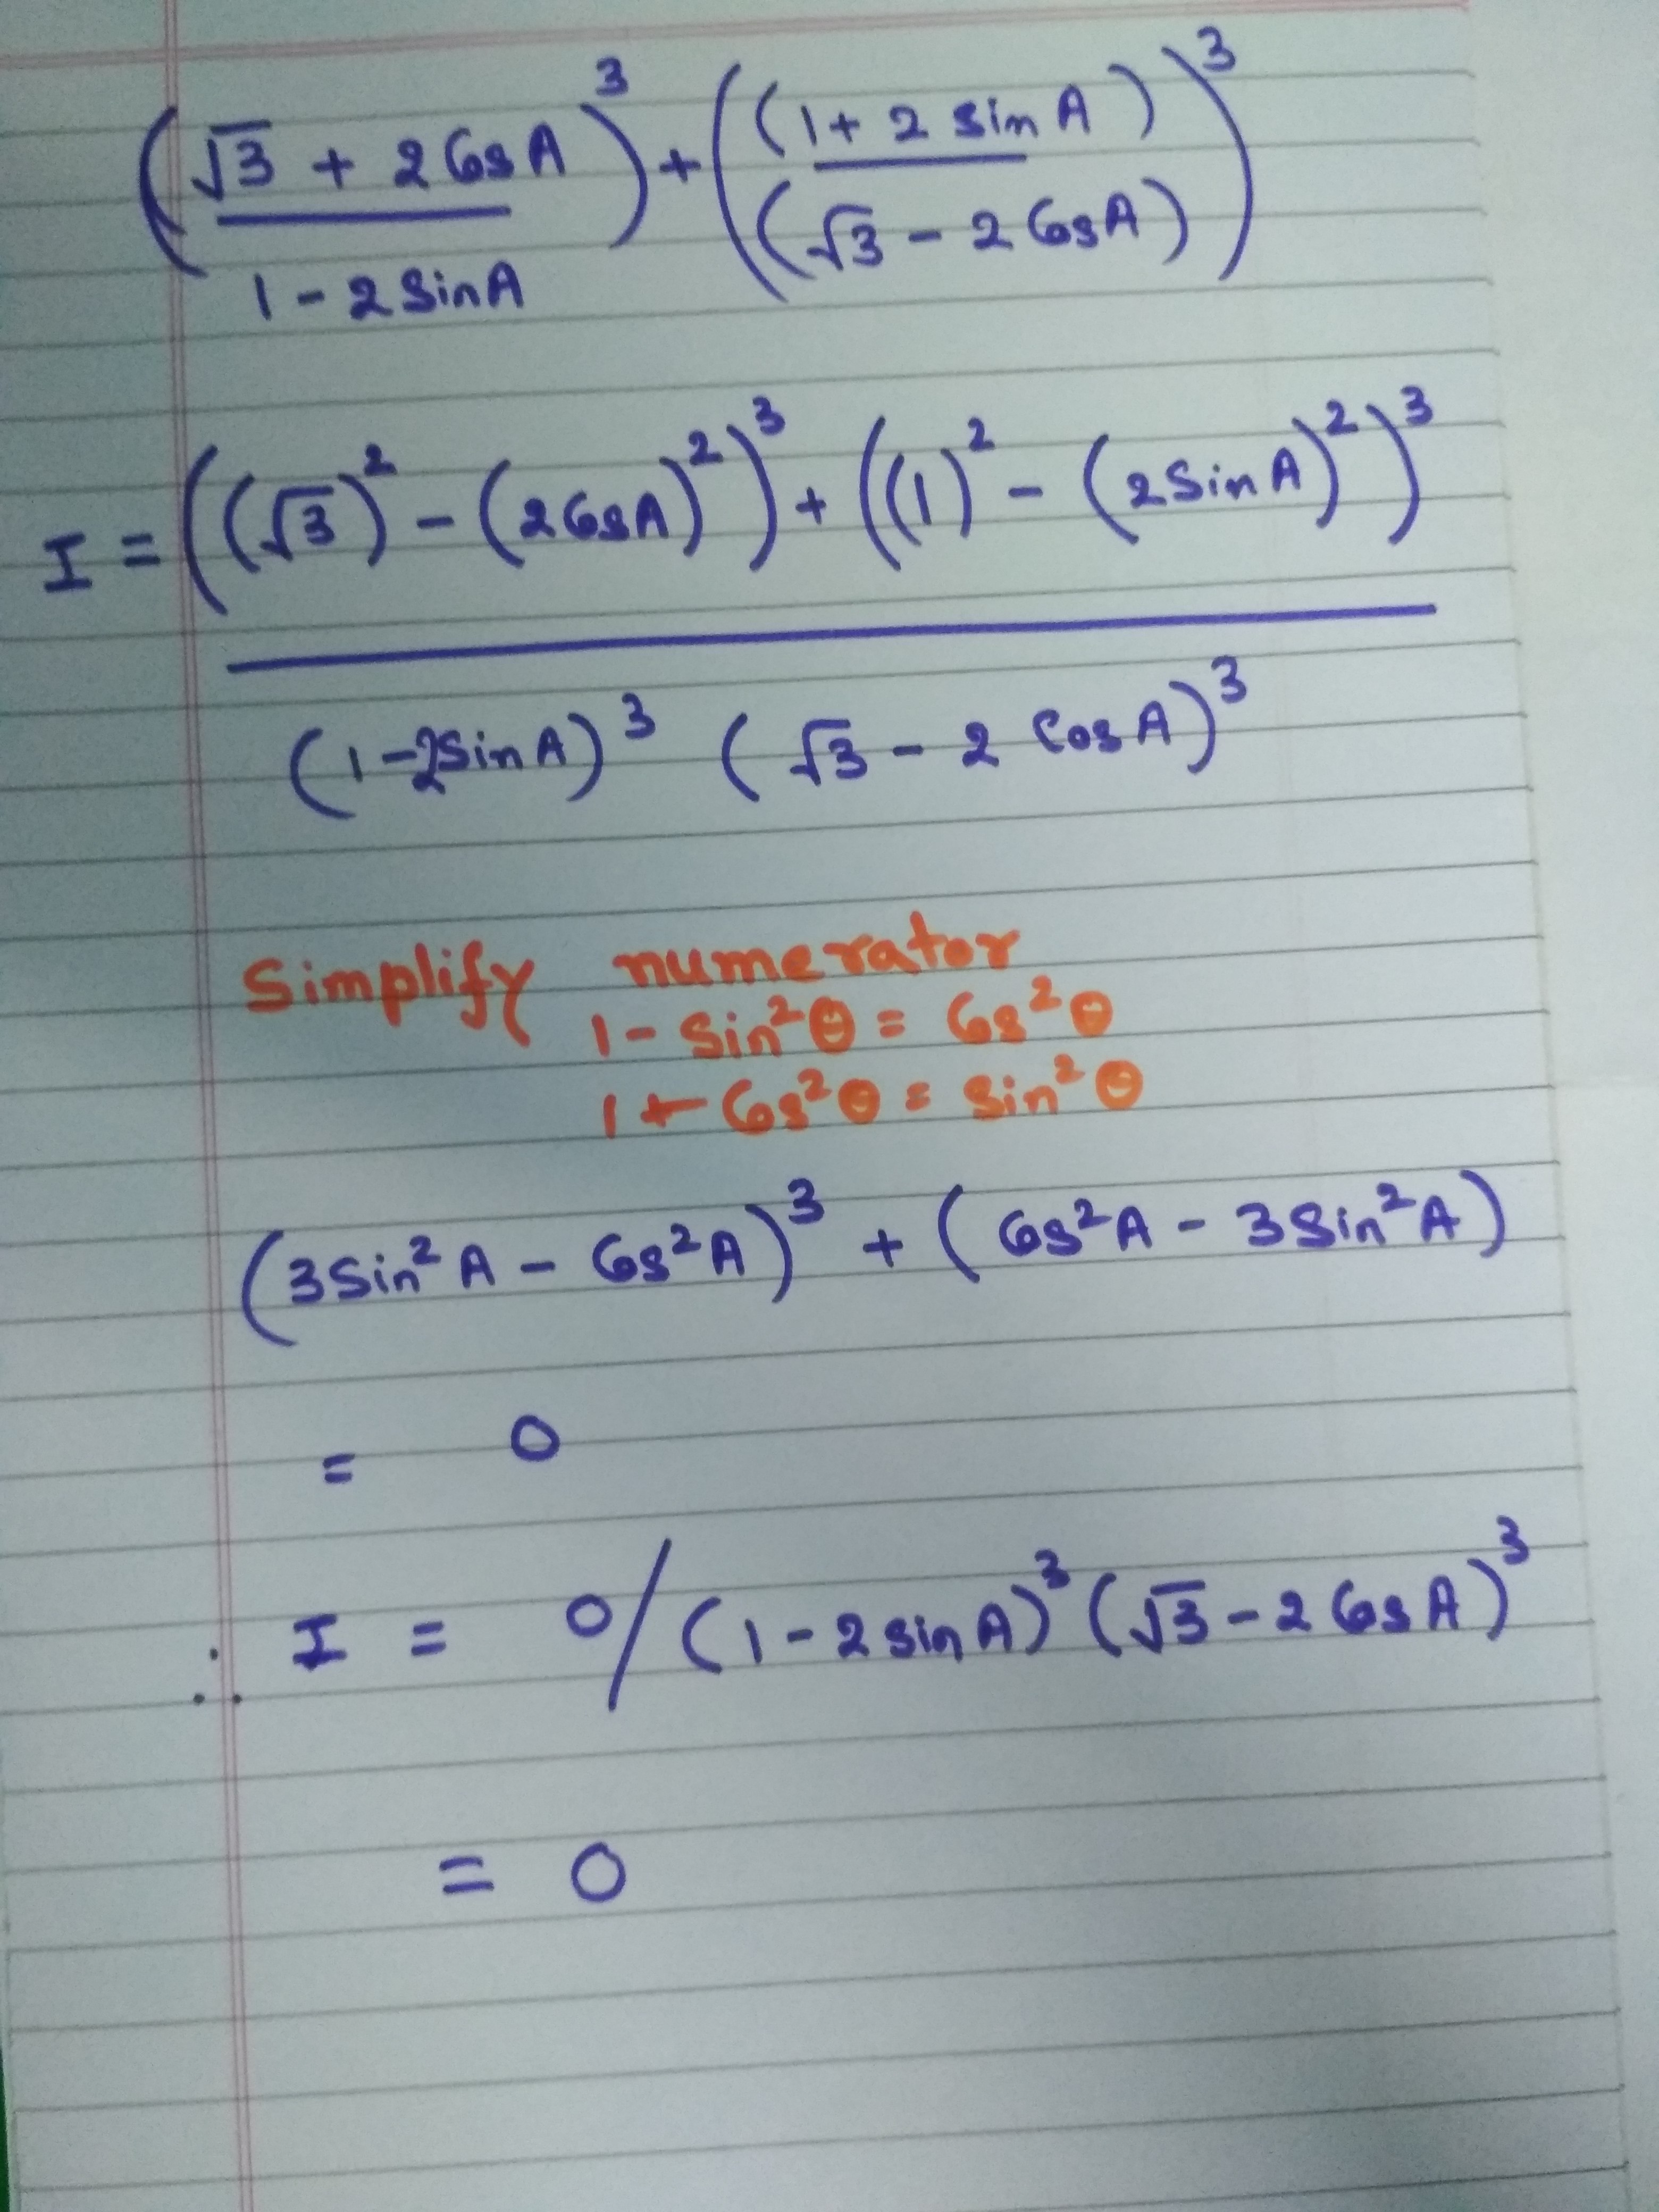 (√3 + 2 Cos A / 1 - 2 Sin A)³ + ((1 + 2 sin A) / (√3 - 2 Cos A))³
I = ((√3)² - (2 Cos A)²)³ + ((1)² - (2 Sin A)²)³
(1 - 2 Sin A)³ (√3 - 2 Cos A)³
Simplify numerator
1 - Sin²θ = Cos²θ
1 + Cos²θ = Sin²θ
(3 Sin² A - Cos² A)³ + (Cos² A - 3 Sin² A)
= 0
∴ I = 0/(1 - 2 sin A)³ (√3 - 2 Cos A)³
= 0